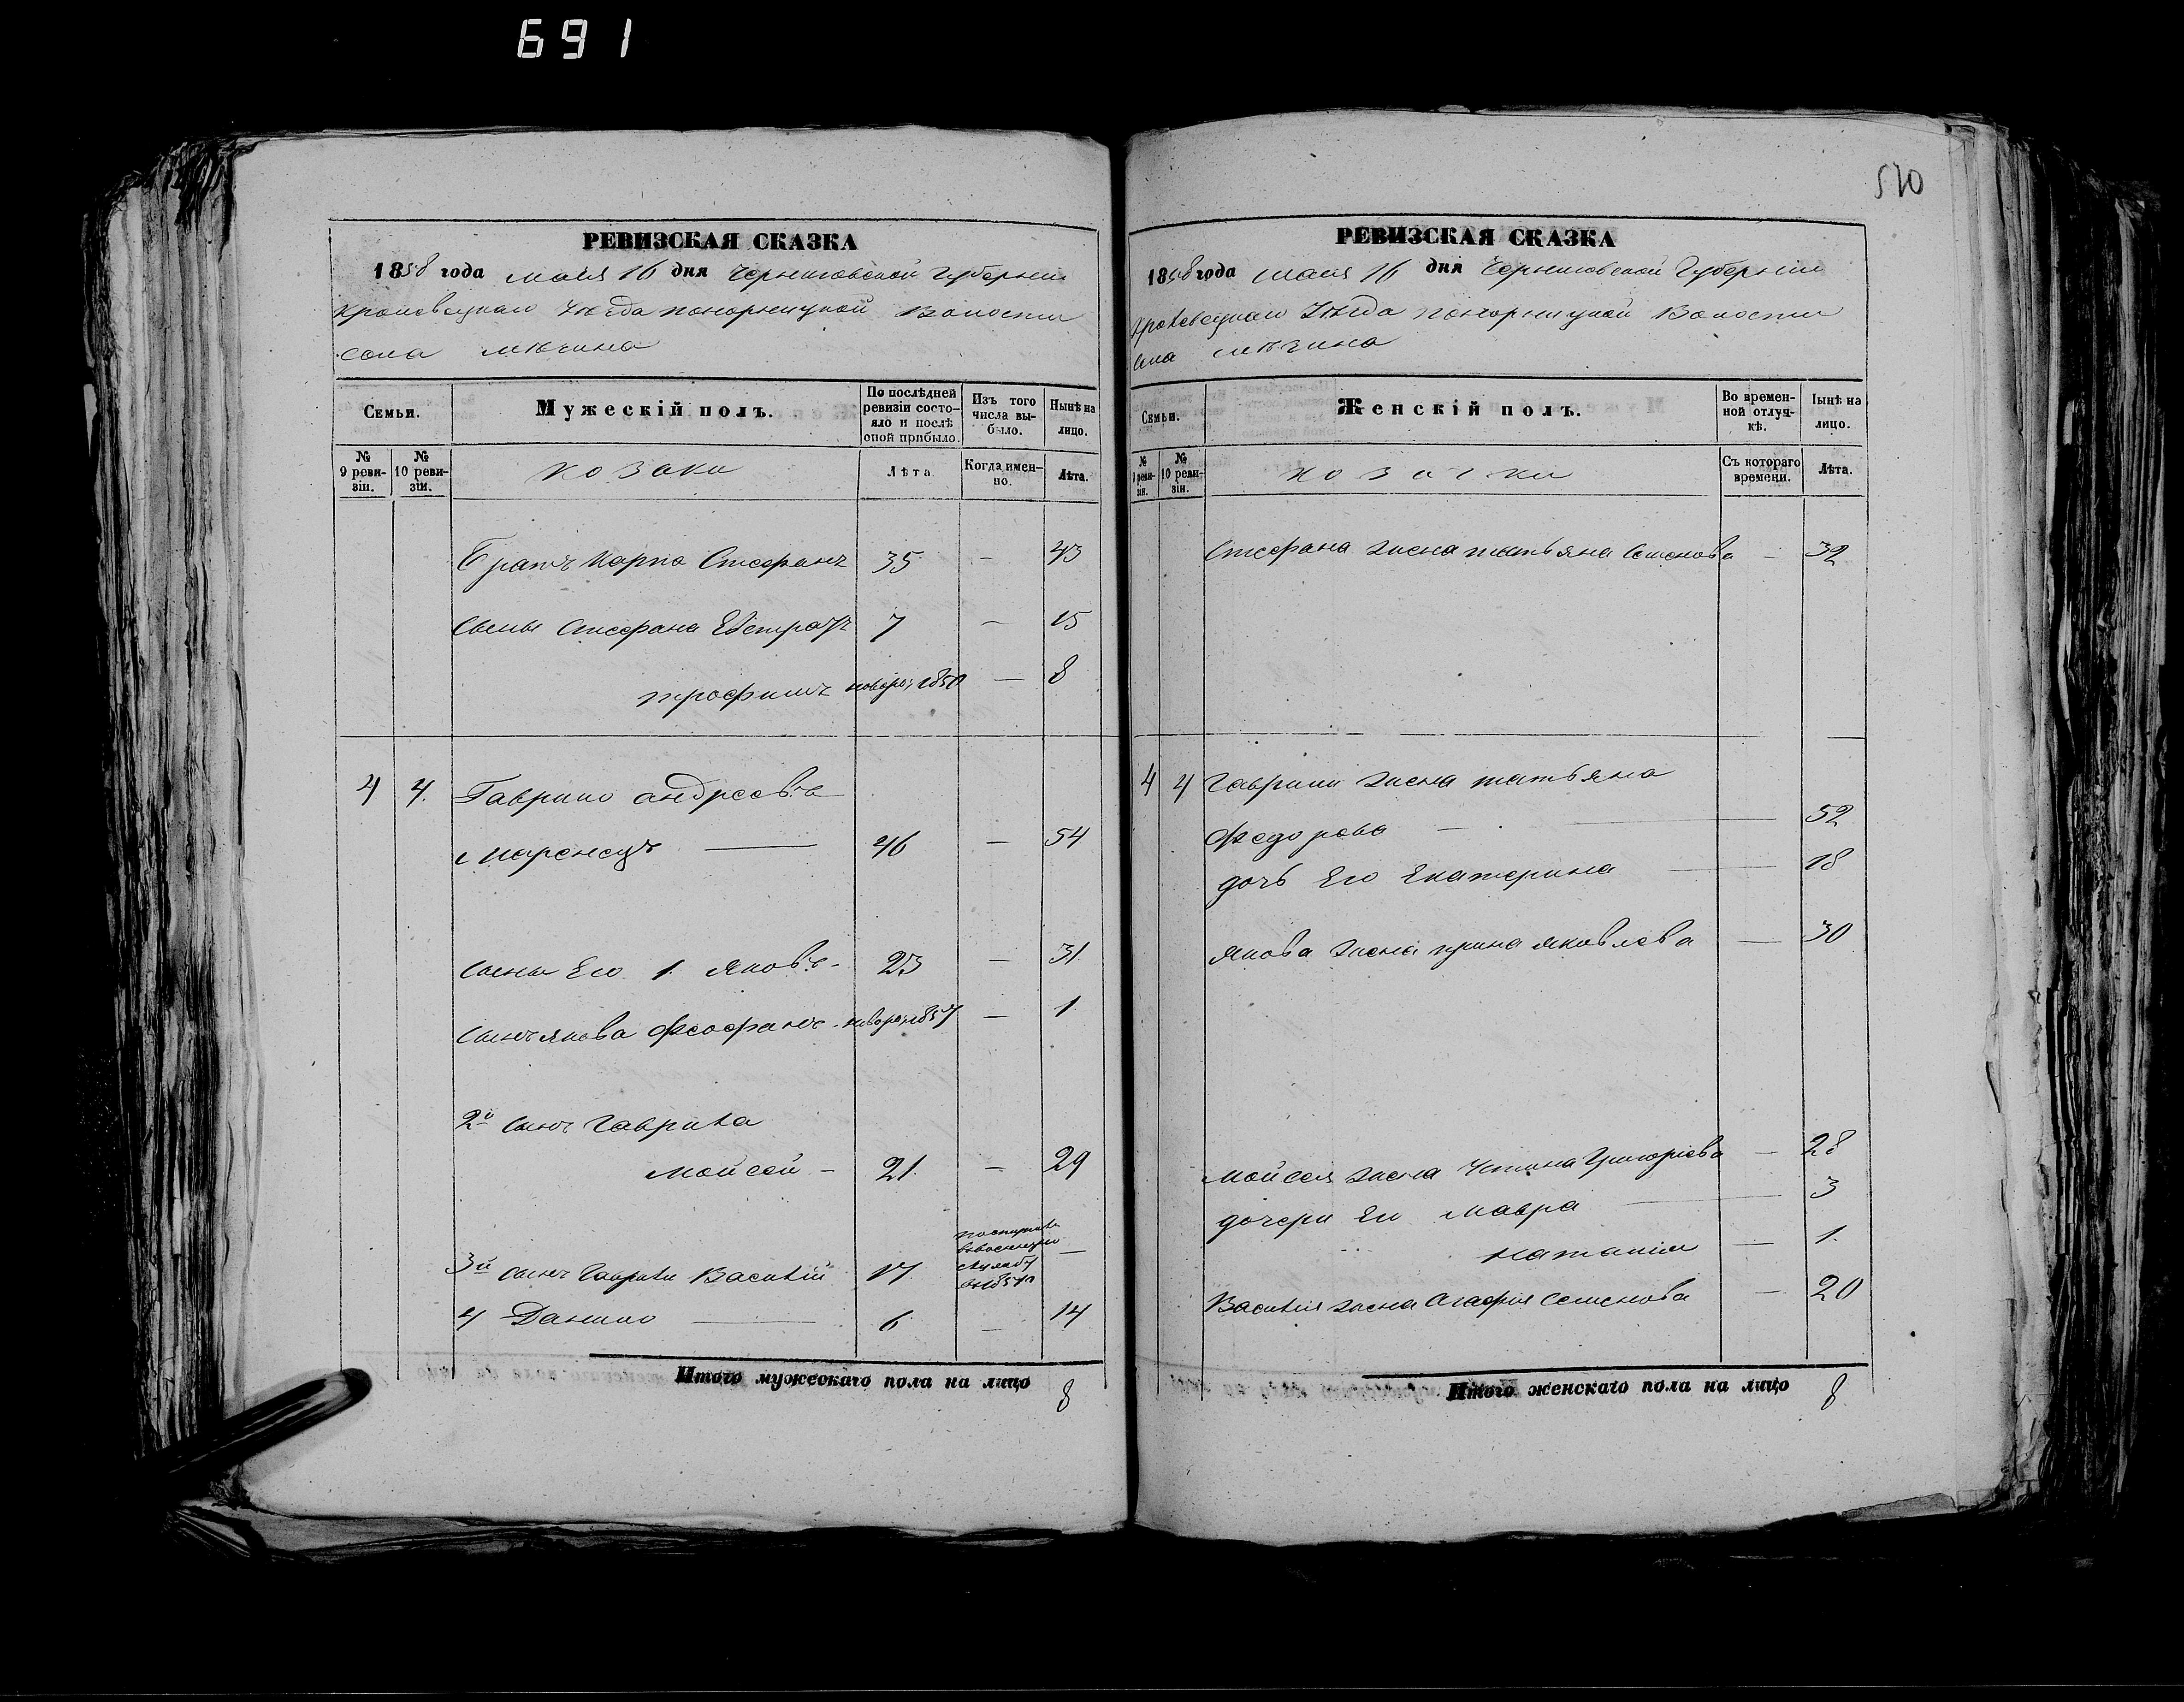 691
510
РЕВИЗСКАЯ СКАЗКА
1858 года мая 16 дня Черниговской Губернии
Кролевецкаго Уѣзда Понорницкой Волости
села Мѣзина
Семьи.
Мужескій полъ.
По послѣдней ревизіи состояло и послѣ оной прибыло.
Изъ того числа выбыло.
Нынѣ на лицо.
№ 9 ревизіи.
№ 10 ревизіи.
козаки
Лѣта
Когда именно.
Лѣта.
Братъ Карпа Стефанъ 35 — 43
Сыны Стефана Евстратъ 7 — 15
Трофимъ новорож 1850 — 8
4 4. Гаврило Андреевъ
46 — 54
сыны Его 1. Яковъ 23 — 31
сынъ Якова Феофанъ новорож 1857 — 1
2й сынъ Гаврила
Мойсей — 21. — 29
3й сынъ Гаврила Василій 17. —
4 Данило — 6. — 14
Итого мужескаго пола на лицо 8
РЕВИЗСКАЯ СКАЗКА
1858 года мая 16 дня Черниговской Губернии
Кролевецкаго Уѣзда Понорницкой Волости
села Мѣзина
Семьи.
Женскій полъ.
Во временной отлучкѣ.
Нынѣ на лицо.
№ 9 ревизіи.
№ 10 ревизіи.
козачки
Съ котораго времени.
Лѣта.
Стефана жена Татьяна Семенова — 32
4 4 Гаврилы жена Татьяна
Федорова — 52
дочь Его Екатерина — 18
Якова жена Ирина Яковлева — 30
Мойсея жена Устина Григорiева — 28
дочери Его Мавра — 3
Наталия — 1.
Василия жена Агафия Семенова — 20
Итого женскаго пола на лицо 8